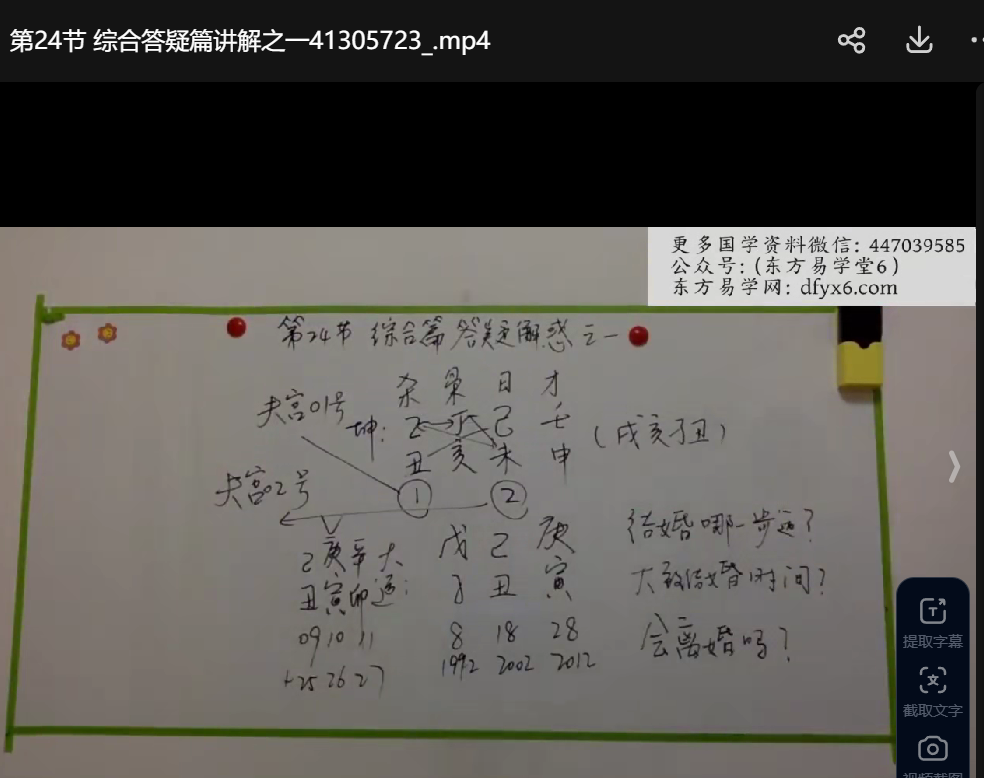 第24节 综合答疑篇讲解之一41305723_.mp4
更多国学资料微信: 447039585
公众号:(东方易学堂6)
东方易学网: dfyx6.com
第24节 综合篇 答疑解惑之一
杀 枭 日 才
夫宫01号
坤: 乙 丁 己 壬
丑 亥 未 申 (戌亥子丑)
夫宫02号
① ②
己庚辛 大 戊 己 庚
丑寅卯 运: 子 丑 寅
09 10 11 8 18 28
25 26 27 1992 2002 2012
结婚哪一步运?
大致结婚时间?
会离婚吗?
提取字幕
截取文字